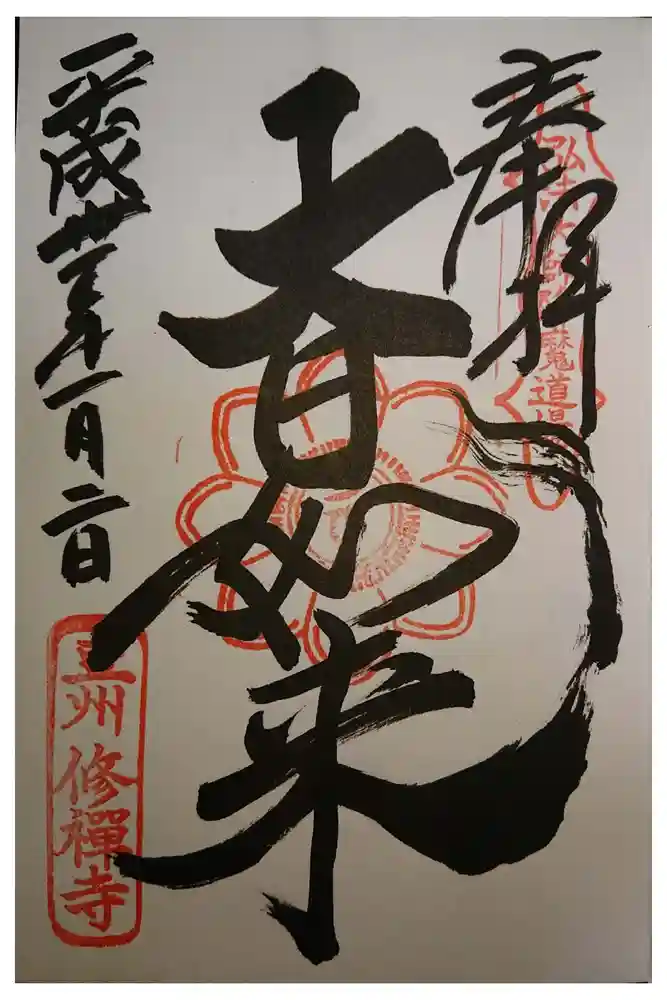 奉拝
弘法大師降魔道場
大日如来
平成卅一年一月二日
豆州修禅寺